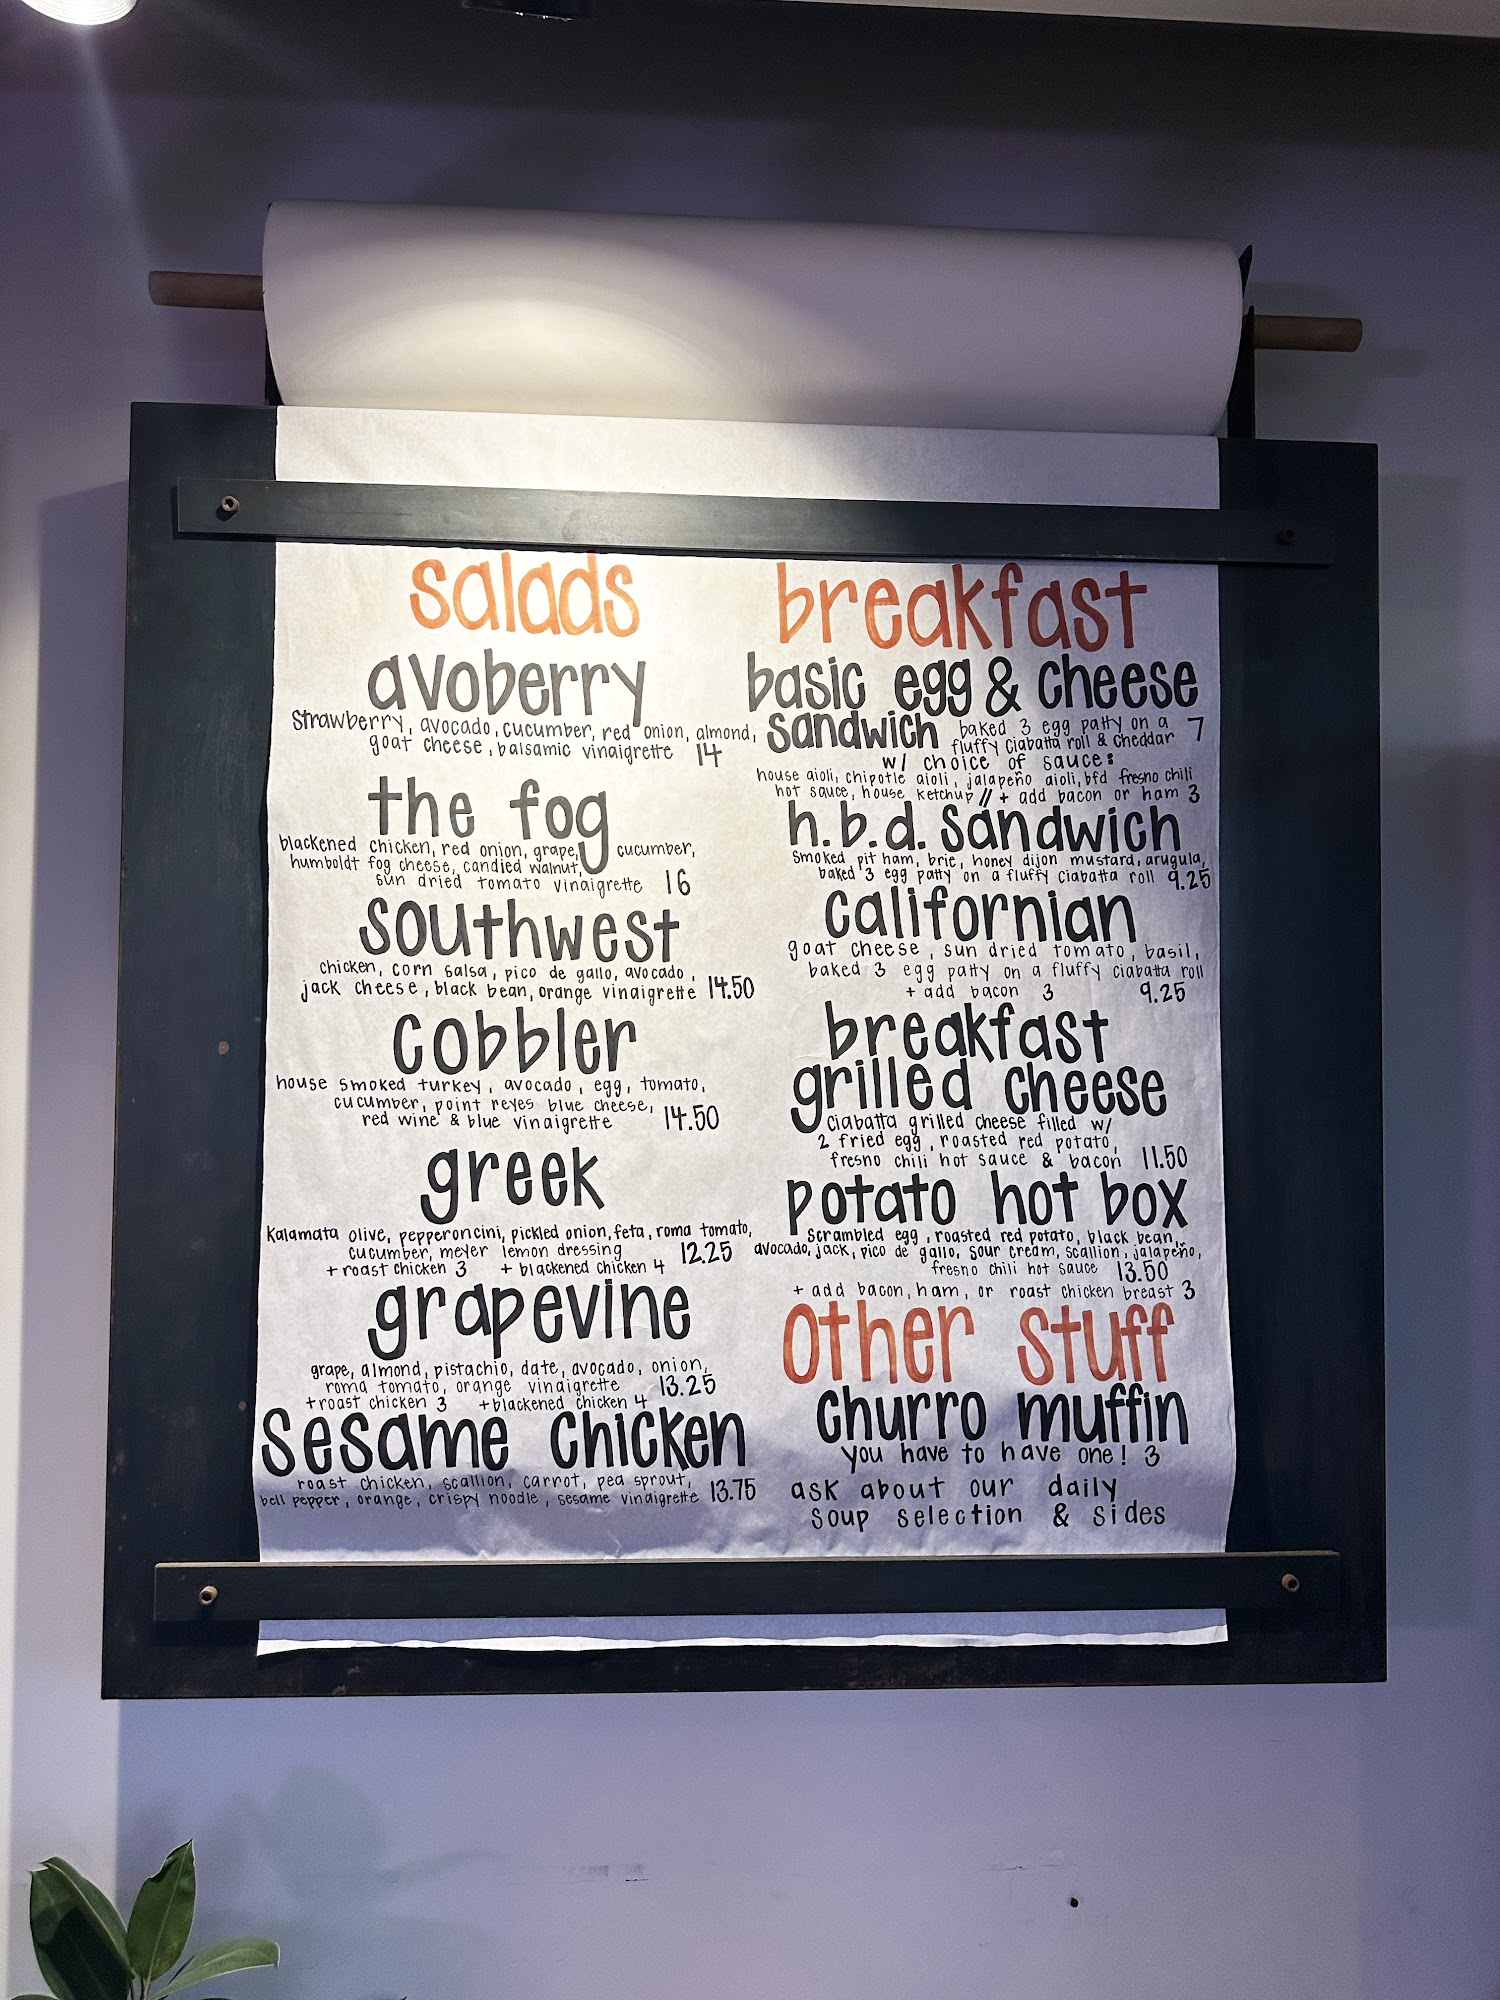 salads
avoberry
strawberry, avocado, cucumber, red onion, almond,
goat cheese, balsamic vinaigrette 14
the fog
blackened chicken, red onion, grape, cucumber,
humboldt fog cheese, candied walnut,
sun dried tomato vinaigrette 16
southwest
chicken, corn salsa, pico de gallo, avocado,
jack cheese, black bean, orange vinaigrette 14.50
cobbler
house smoked turkey, avocado, egg, tomato,
cucumber, point reyes blue cheese,
red wine & blue vinaigrette 14.50
greek
kalamata olive, pepperoncini, pickled onion, feta, roma tomato,
cucumber, meyer lemon dressing 12.25
+ roast chicken 3 + blackened chicken 4
grapevine
grape, almond, pistachio, date, avocado, onion,
roma tomato, orange vinaigrette 13.25
+ roast chicken 3 + blackened chicken 4
sesame chicken
roast chicken, scallion, carrot, pea sprout,
bell pepper, orange, crispy noodle, sesame vinaigrette 13.75
breakfast
basic egg & cheese
sandwich baked 3 egg patty on a 7
fluffy ciabatta roll & cheddar
w/ choice of sauce:
house aioli, chipotle aioli, jalapeño aioli, bfd fresno chili
hot sauce, house ketchup // + add bacon or ham 3
h.b.d. sandwich
smoked pit ham, brie, honey dijon mustard, arugula,
baked 3 egg patty on a fluffy ciabatta roll 9.25
californian
goat cheese, sun dried tomato, basil,
baked 3 egg patty on a fluffy ciabatta roll
+ add bacon 3 9.25
breakfast
grilled cheese
ciabatta grilled cheese filled w/
2 fried egg, roasted red potato,
fresno chili hot sauce & bacon 11.50
potato hot box
scrambled egg, roasted red potato, black bean,
avocado, jack, pico de gallo, sour cream, scallion, jalapeño,
fresno chili hot sauce 13.50
+ add bacon, ham, or roast chicken breast 3
other stuff
churro muffin
you have to have one! 3
ask about our daily
soup selection & sides